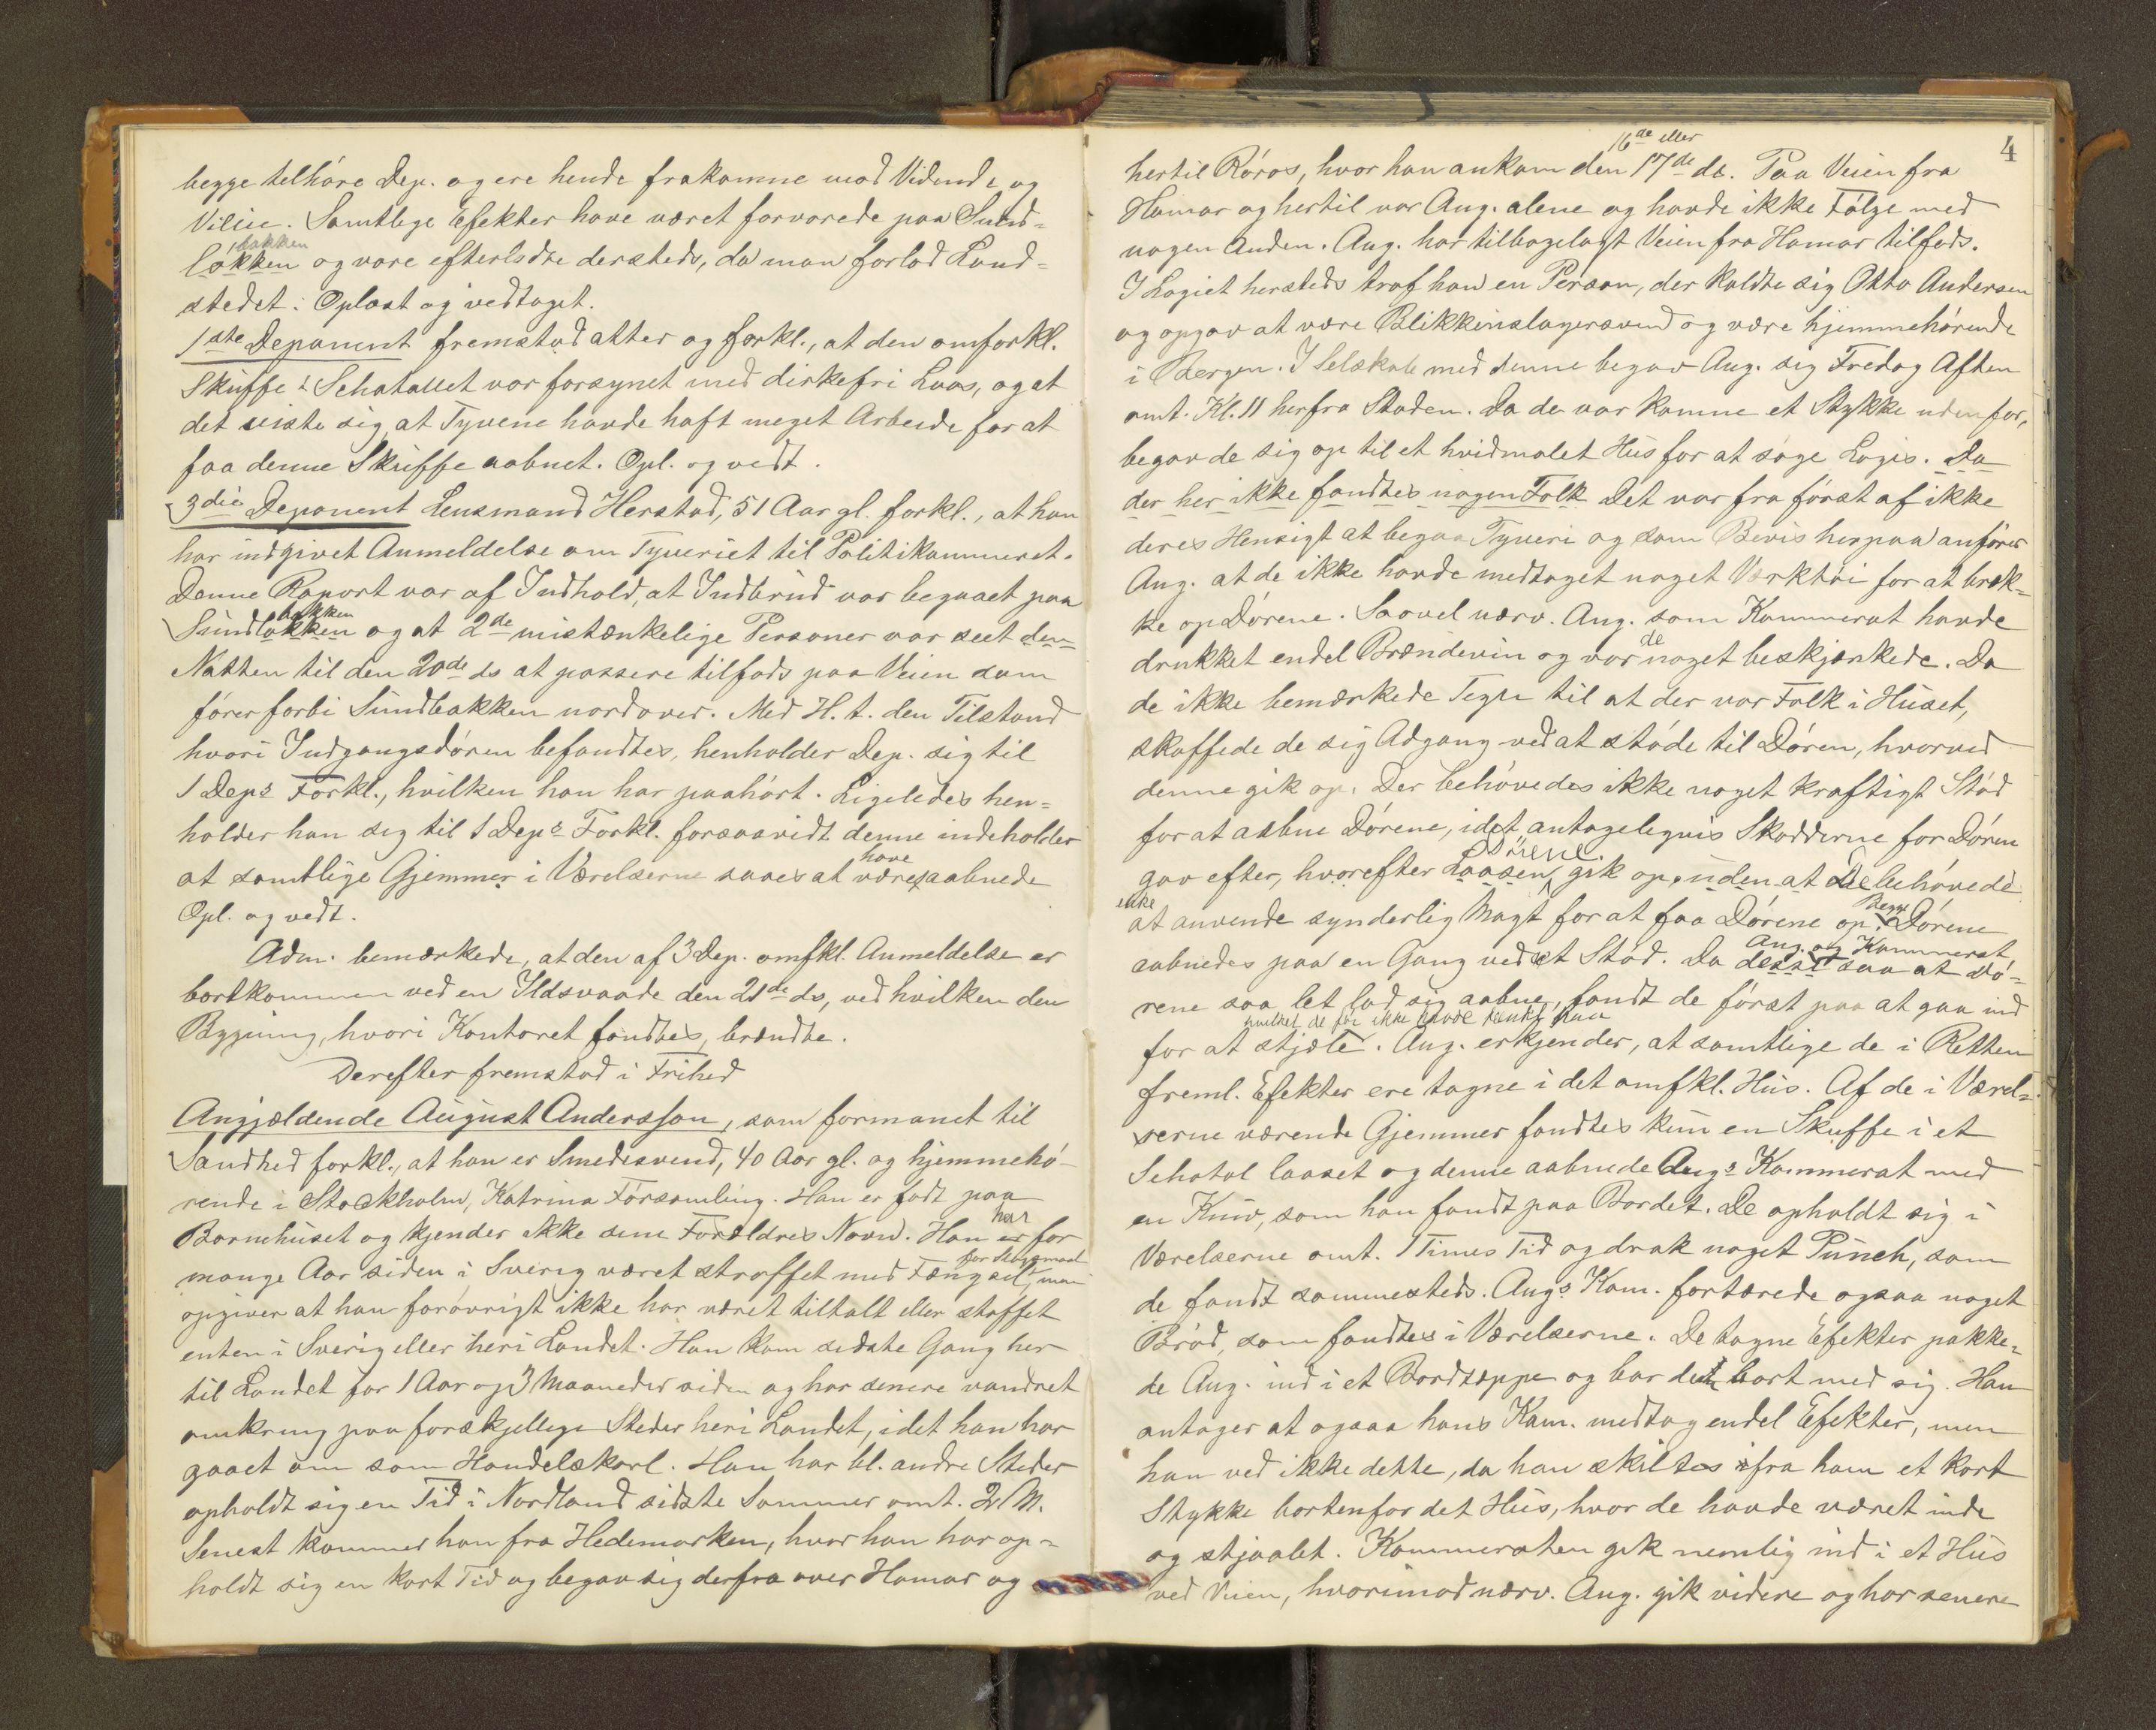 begge tilhøre Dep. og ere hende frakomne mod Vidende og
Vilie. Samtlige Efekter have været forvarede paa Sund-
bakken
løkken og vare efterladte dersteds, da man forlod Land-
stedet. Oplæst og vedtaget.
1ste Deponent fremstod atter og forkl., at den omforkl.
Skuffe i Schatollet var forsynet med dirkefri Laas, og at
det viste sig, at Tyvene havde haft meget Arbeide for at
faa denne Skuffe aabnet. Opl. og vedt.
3die Deponent Lensmand Herstad, 51 Aar gl. forkl., at han
har indgivet Anmeldelse om Tyveriet til Politikammeret.
Denne Raport var af Indhold, at Indbrud var begaaet paa
bakken
Sundløkken og at 2de mistænkelige Personer var seet den
Natten til den 20de ds at passere tilfods paa Veien som
fører forbi Sundbakken nordover. Med H. t. den Tilstand
hvori Indgangsdøren befandtes, henholder Dep. sig til
1 Deps Forkl., hvilken han har paahørt. Ligeledes hen-
holder han sig til 1 Deps Forkl. forsaavidt denne indeholder
have
at samtlige Gjemmer i Værelserne saaes at være aabnede
Opl. og vedt.
Adm. bemærkede, at den af 3 Dep. omfkl. Anmeldelse er
bortkommen ved en Ildsvaade den 21de ds, ved hvilken den
Bygning, hvori Kontoret fandtes, brændte.
Derefter fremstod i Frihed
Angjældende August Andersson, som formanet til
Sandhed forkl., at han er Smedesvend, 40 Aar gl. og hjemmehø-
rende i Stockholm, Katrina Församling. Han er født paa
har
Barnehuset og kjender ikke sine Forældres Navn. Han er for
mange Aar siden i Sverig været straffet med Fængsel, men
opgiver at han forøvrigt ikke har været tiltalt eller straffet
enten i Sverig eller heri Landet. Han kom sidste Gang her
til Landet for 1 Aar og 3 Maaneder siden og har senere vandret
omkring paa forskjellige Steder heri Landet, idet han har
gaaet om som Handelskarl. Han har bl. andre Steder
opholdt sig en Tid i Nordland sidste Sommer omt. 2 M.
Senest kommer han fra Hedemarken, hvor han har op-
holdt sig en kort Tid og begav sig derfra over Hamar og
4
16de eller
hertil Røros, hvor han ankom den 17de ds. Paa Veien fra
Hamar og hertil var Ang. alene og havde ikke Følge med
nogen Anden. Ang. har tilbagelagt Veien fra Hamar tilfods.
I Logiet hersteds traf han en Person, der kaldte sig Otto Andersen
og opgav at være Blikkenslagersvend og være hjemmehørende
i Bergen. I Selskab med denne begav Ang. sig Fredag Aften
omt. Kl. 11 herfra Staden. Da de var komne et Stykke udenfor,
begav de sig op til et hvidmalet Hus for at søge Logis. Da
der her ikke fandtes nogen Folk. Det var fra først af ikke
deres Hensigt at begaa Tyveri og som Bevis herpaa anfører
Ang. at de ikke havde medtaget noget Værktøi for at bræk-
ke op Dørene. Saavel nærv. Ang. som Kammerat havde
de
drukket endel Brændevin og var noget beskjænkede. Da
de ikke bemærkede Tegn til at der var Folk i Huset,
skaffede de sig Adgang ved at støde til Døren, hvorved
denne gik op. Der behøvedes ikke noget kraftigt Stød
for at aabne Dørene, idet antageligvis Skodderne for Døren
Dørene
gav efter, hvorefter Laasen gik op, uden at De behøvede
ikke
at anvende synderlig Magt for at faa Dørene op. Begge Dørene
Ang. og Kammerat
aabnedes paa en Gang ved et Stød. Da disse saa at Dø-
rene saa let lod sig aabne, fandt de først paa at gaa ind
hvilket de før ikke havde tænkt paa
for at stjæle. Ang. erkjender, at samtlige de i Retten
freml. Efekter ere tagne i det omfkl. Hus. Af de i Værel-
serne værende Gjemmer fandtes kun en Skuffe i et
Schatol laaset og denne aabnede Angs Kammerat med
en Kniv, som han fandt paa Bordet. De opholdt sig i
Værelserne omt. 1 Times Tid og drak noget Punch, som
de fandt sammesteds. Angs Kam. fortærede ogsaa noget
Brød, som fandtes i Værelserne. De tagne Efekter pakke-
de Ang. ind i et Bordtæppe og bar det bort med sig. Han
antager at ogsaa hans Kam. medtog endel Efekter, men
han ved ikke dette, da han skiltes ifra ham et kort
Stykke bortenfor det Hus, hvor de havde været inde
og stjaalet. Kammeraten gik nemlig ind i et Hus
ved Veien, hvorimod nærv. Ang. gik videre og har senere